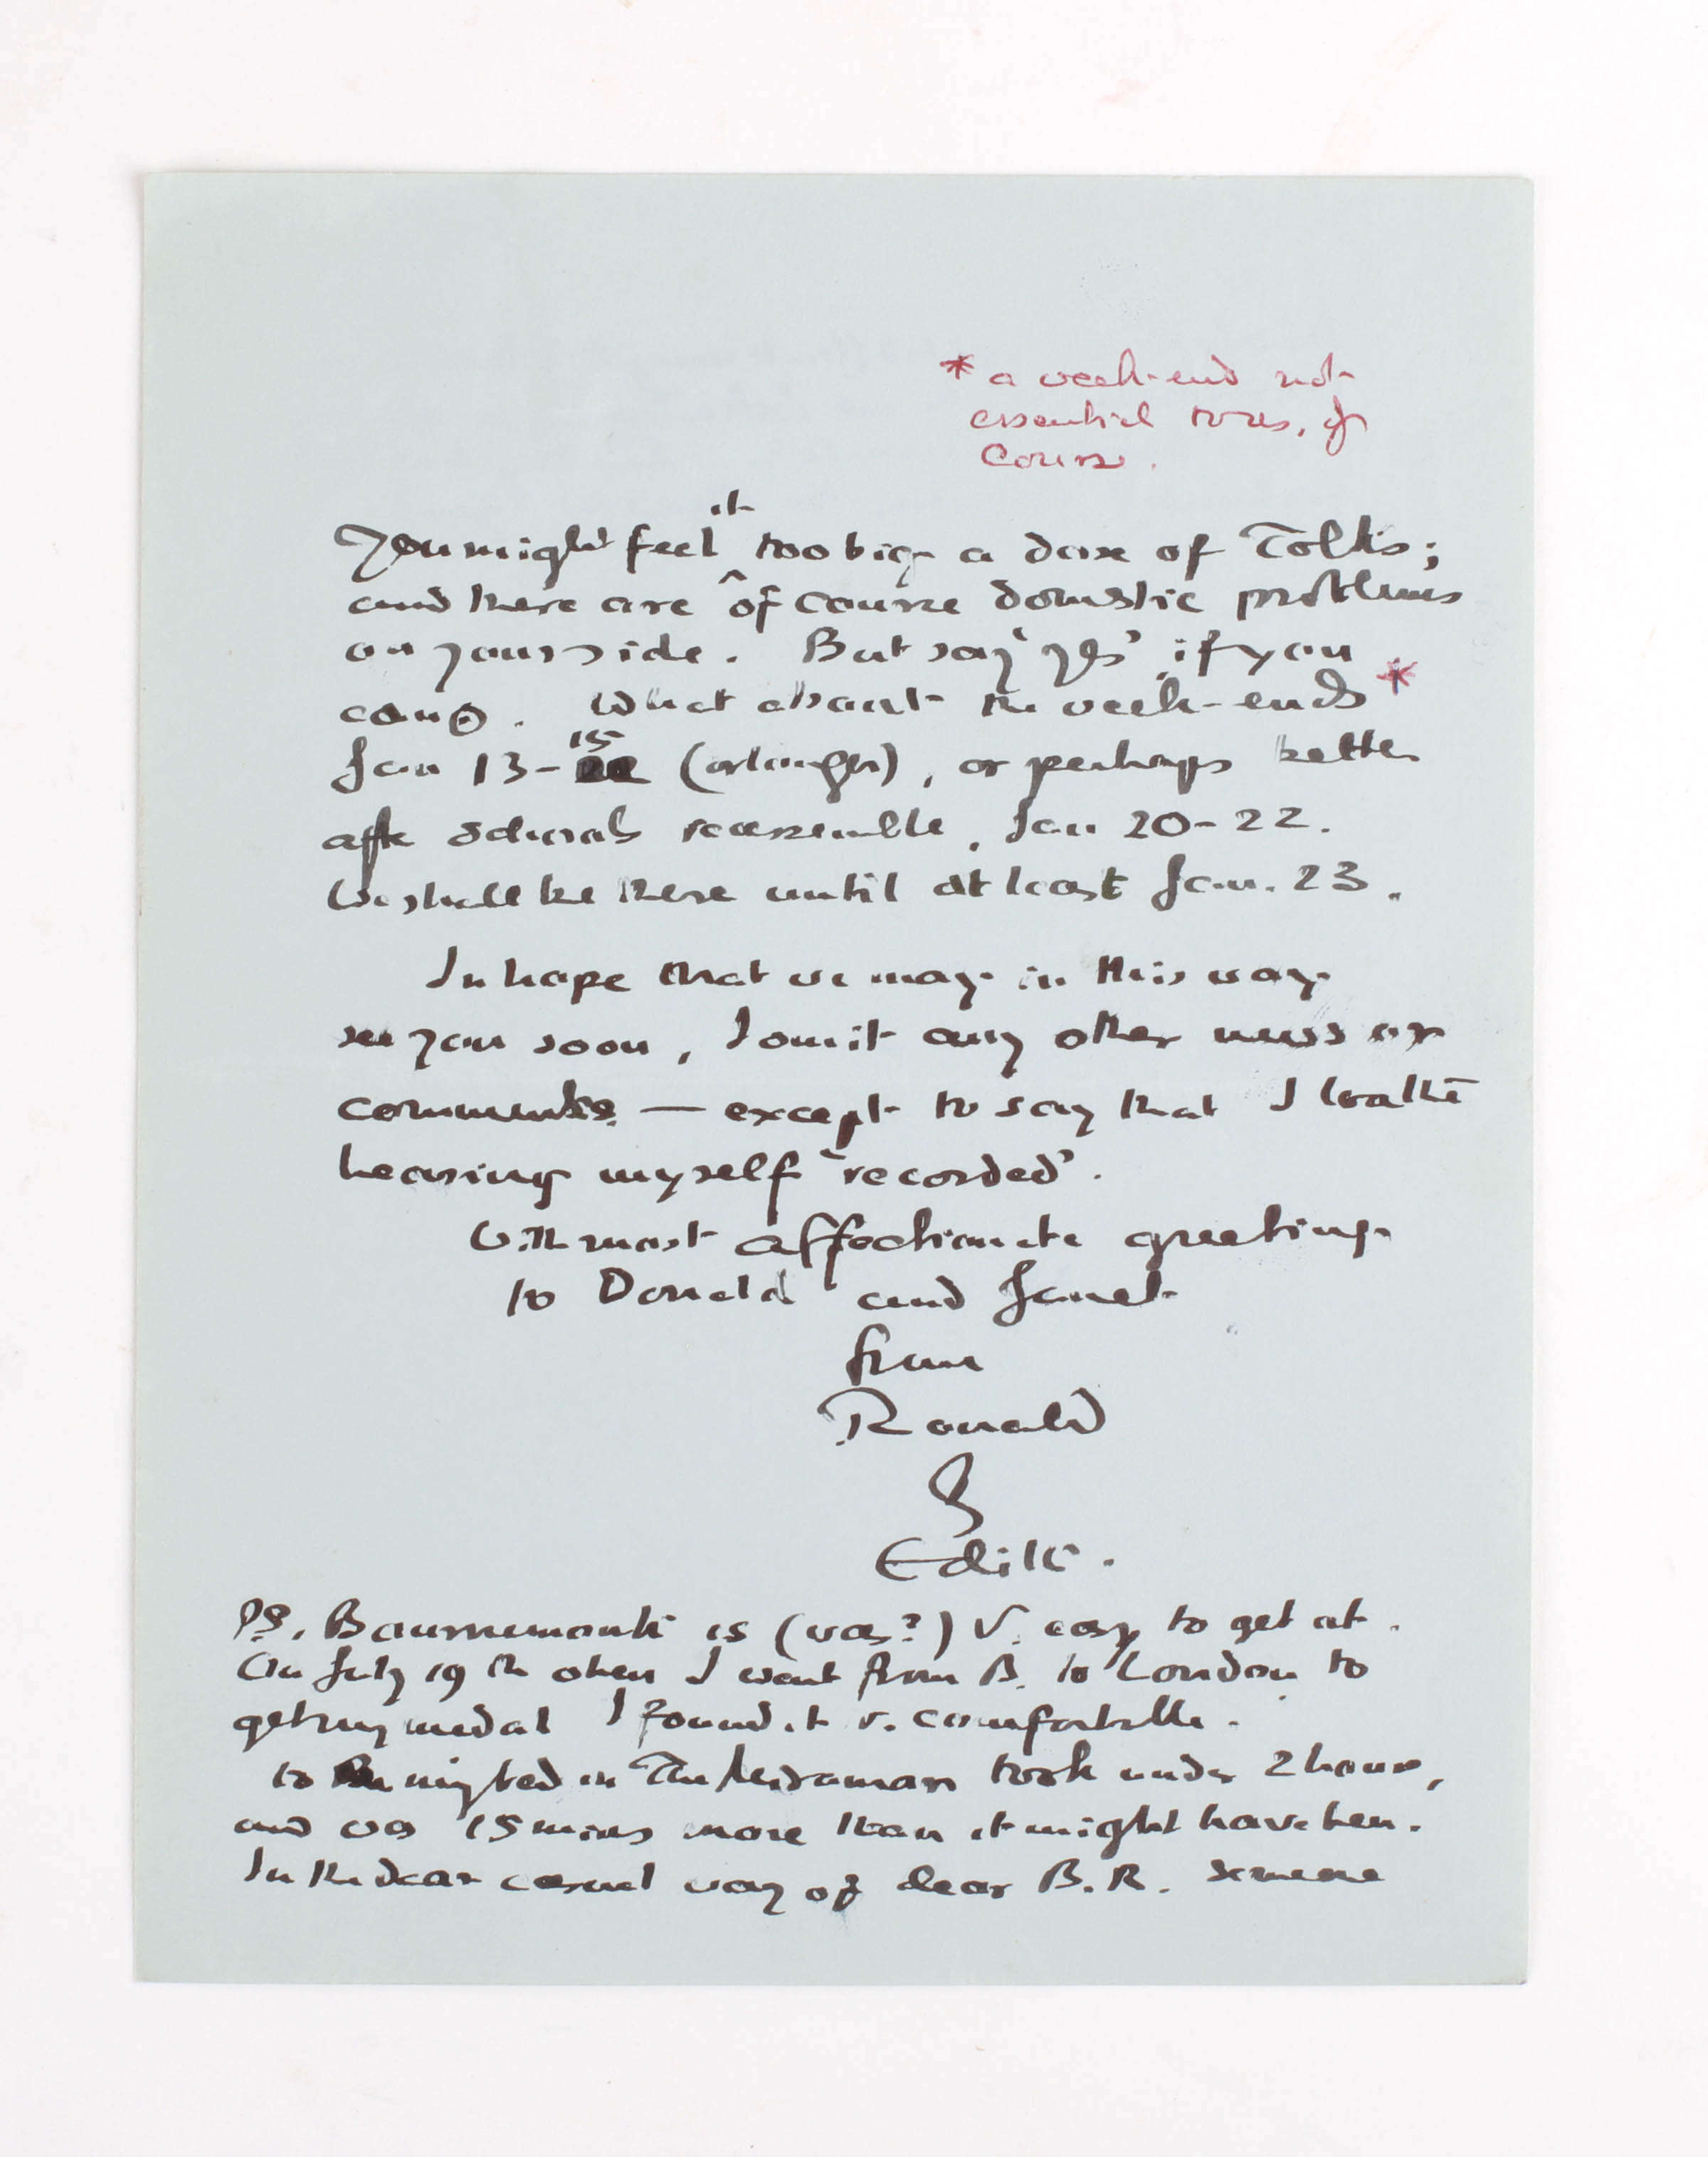 * a week-end not
essential to us, of
course.
it
You might feel ^ too big a dose of Tolks;
and there are of course domestic problems
on your side. But say 'yes' if you
can. What about the week-ends *
15
Jan 13- (or longer), or perhaps better
after schools reassemble, Jan 20-22.
We shall be there until at least Jan. 23.
In hope that we may in this way
see you soon, I omit any other news or
comments — except to say that I loathe
hearing myself 'recorded'.
With most affectionate greetings
to Donald and Janet
from
Ronald
&
Edith.
PS. Bournemouth is (was?) v. easy to get at.
On July 19th when I went from B. to London to
get my medal I found it v. comfortable.
to my bed in The Miramar took under 2 hours,
and was 15 mins more than it might have been.
In the dear casual way of dear B.R. someone